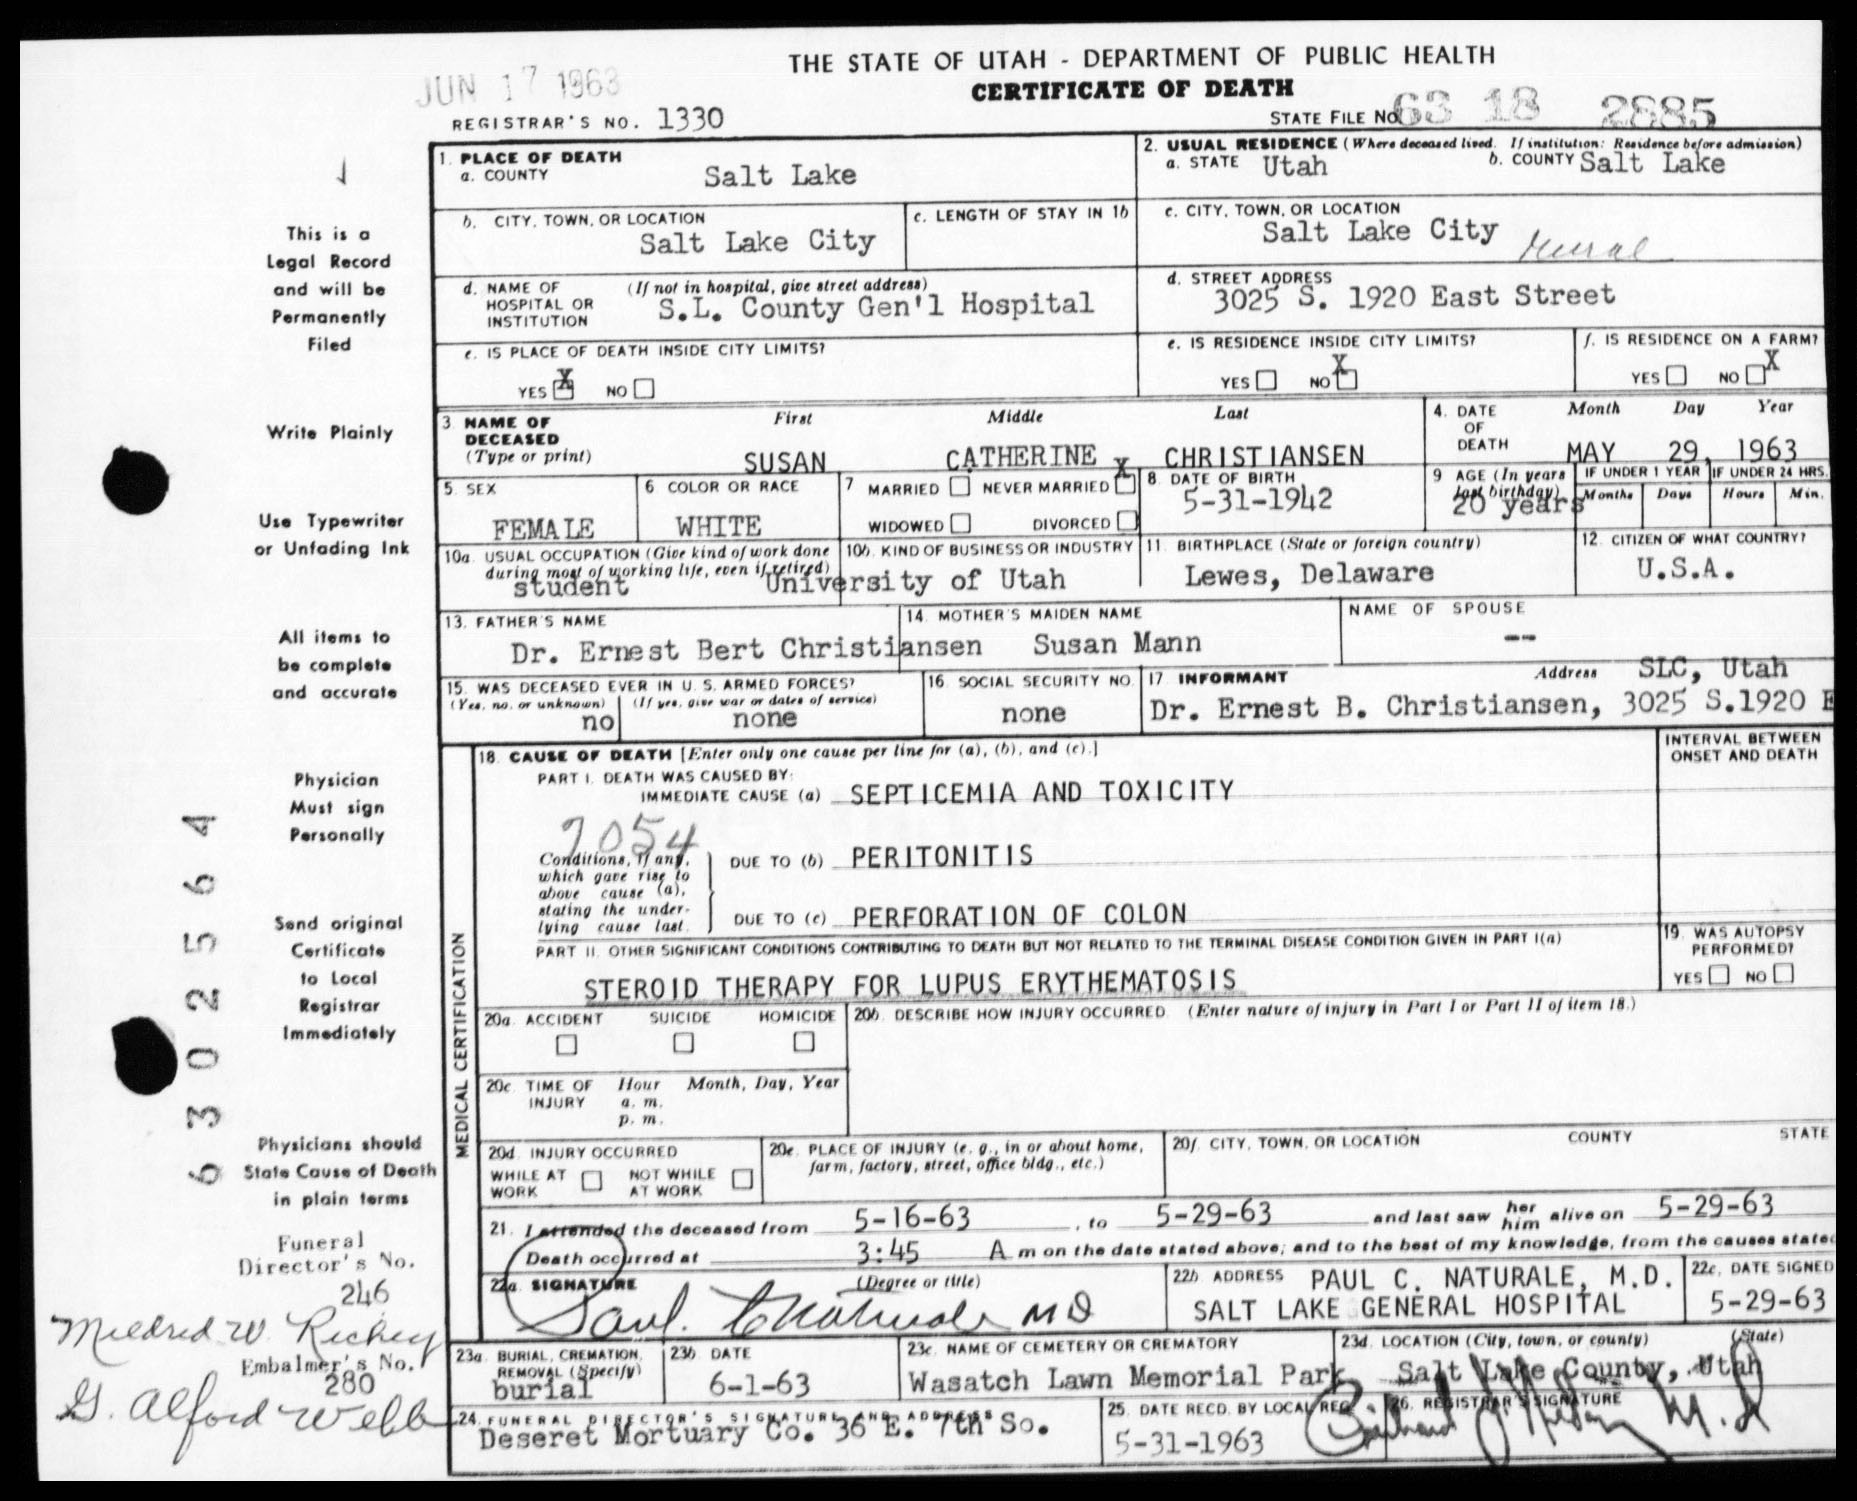 THE STATE OF UTAH - DEPARTMENT OF PUBLIC HEALTH
CERTIFICATE OF DEATH
JUN 17 1963
REGISTRAR'S NO. 1330
STATE FILE NO. 63 18 2885
This is a
Legal Record
and will be
Permanently
Filed
Write Plainly
Use Typewriter
or Unfading Ink
All items to
be complete
and accurate
Physician
Must sign
Personally
Send original
Certificate
to Local
Registrar
Immediately
Physicians should
State Cause of Death
in plain terms
Funeral
Director's No.
246
Mildred W. Richey
Embalmer's No.
280
G. Alford Webb
6302564
1. PLACE OF DEATH
a. COUNTY Salt Lake
2. USUAL RESIDENCE (Where deceased lived. If institution: Residence before admission)
a. STATE Utah b. COUNTY Salt Lake
b. CITY, TOWN, OR LOCATION
Salt Lake City
c. LENGTH OF STAY IN 1b
c. CITY, TOWN, OR LOCATION
Salt Lake City Rural
d. NAME OF HOSPITAL OR INSTITUTION (If not in hospital, give street address)
S.L. County Gen'l Hospital
d. STREET ADDRESS
3025 S. 1920 East Street
e. IS PLACE OF DEATH INSIDE CITY LIMITS?
YES X NO
e. IS RESIDENCE INSIDE CITY LIMITS?
YES NO X
f. IS RESIDENCE ON A FARM?
YES NO X
3. NAME OF DECEASED (Type or print)
First Middle Last
SUSAN CATHERINE CHRISTIANSEN
4. DATE OF DEATH
Month Day Year
MAY 29, 1963
5. SEX
FEMALE
6 COLOR OR RACE
WHITE
7 MARRIED NEVER MARRIED X
WIDOWED DIVORCED
8. DATE OF BIRTH
5-31-1942
9 AGE (In years last birthday)
20 years
IF UNDER 1 YEAR
Months Days
IF UNDER 24 HRS.
Hours Min.
10a. USUAL OCCUPATION (Give kind of work done during most of working life, even if retired)
student
10b. KIND OF BUSINESS OR INDUSTRY
University of Utah
11. BIRTHPLACE (State or foreign country)
Lewes, Delaware
12. CITIZEN OF WHAT COUNTRY?
U.S.A.
13. FATHER'S NAME
Dr. Ernest Bert Christiansen
14. MOTHER'S MAIDEN NAME
Susan Mann
NAME OF SPOUSE
--
15. WAS DECEASED EVER IN U. S. ARMED FORCES?
(Yes, no, or unknown) (If yes, give war or dates of service)
no none
16. SOCIAL SECURITY NO.
none
17 INFORMANT Address SLC, Utah
Dr. Ernest B. Christiansen, 3025 S.1920 E
MEDICAL CERTIFICATION
18. CAUSE OF DEATH [Enter only one cause per line for (a), (b), and (c).]
INTERVAL BETWEEN ONSET AND DEATH
PART I. DEATH WAS CAUSED BY:
IMMEDIATE CAUSE (a) SEPTICEMIA AND TOXICITY
7054
Conditions, if any, which gave rise to above cause (a), stating the underlying cause last.
DUE TO (b) PERITONITIS
DUE TO (c) PERFORATION OF COLON
PART II. OTHER SIGNIFICANT CONDITIONS CONTRIBUTING TO DEATH BUT NOT RELATED TO THE TERMINAL DISEASE CONDITION GIVEN IN PART I(a)
STEROID THERAPY FOR LUPUS ERYTHEMATOSIS
19. WAS AUTOPSY PERFORMED?
YES NO
20a. ACCIDENT SUICIDE HOMICIDE
20b. DESCRIBE HOW INJURY OCCURRED. (Enter nature of injury in Part I or Part II of item 18.)
20c. TIME OF INJURY Hour Month, Day, Year
a. m.
p. m.
20d. INJURY OCCURRED
WHILE AT WORK NOT WHILE AT WORK
20e. PLACE OF INJURY (e. g., in or about home, farm, factory, street, office bldg., etc.)
20f. CITY, TOWN, OR LOCATION COUNTY STATE
21. I attended the deceased from 5-16-63, to 5-29-63 and last saw her him alive on 5-29-63
Death occurred at 3:45 A m on the date stated above; and to the best of my knowledge, from the causes stated
22a. SIGNATURE (Degree or title)
Paul C Naturale MD
22b. ADDRESS PAUL C. NATURALE, M.D.
SALT LAKE GENERAL HOSPITAL
22c. DATE SIGNED
5-29-63
23a. BURIAL, CREMATION, REMOVAL (Specify)
burial
23b DATE
6-1-63
23c. NAME OF CEMETERY OR CREMATORY
Wasatch Lawn Memorial Park
23d. LOCATION (City, town, or county) (State)
Salt Lake County, Utah
24. FUNERAL DIRECTOR'S SIGNATURE AND ADDRESS
Deseret Mortuary Co. 36 E. 7th So.
25. DATE RECD. BY LOCAL REG.
5-31-1963
26. REGISTRAR'S SIGNATURE
M.D